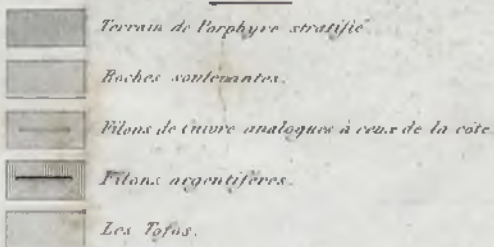 Terrain de Porphyre stratifié
Roches soulevantes.
Filons de cuivre analogues à ceux de la côte.
Filons argentifères.
Les Tofos.